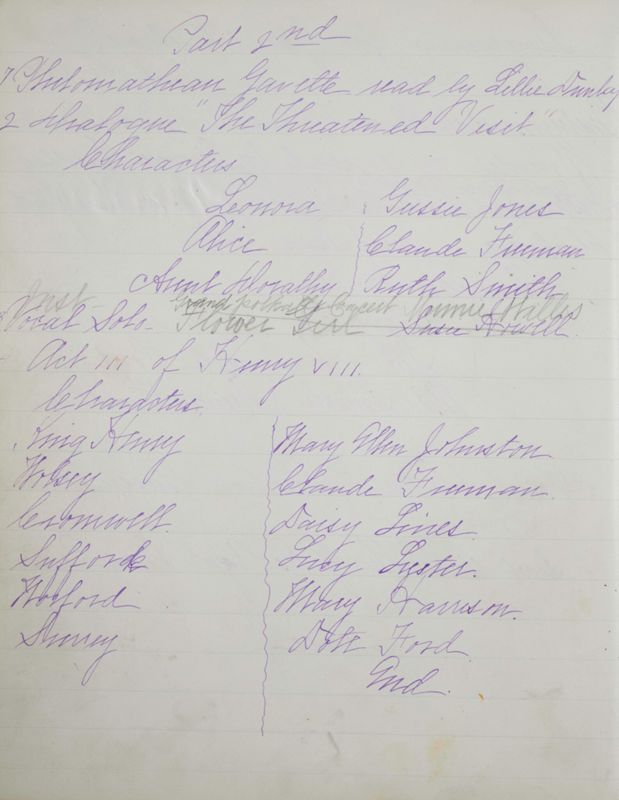 Part 2nd
1 Philomathean Gazette read by Lillie
2 Dialogue "The Threatened Visit."
Characters
Leonora Gussie Jones
Alice Claude Freeman
Aunt Dorathy Ruth Smith
Inst- Grand
Vocal Solo- Flower Girl Susie Howell
Act III of Henry VIII.
Characters
King Henry Mary Ellen Johnston
Wolsey Claude Freeman.
Cromwell. Daisy Lines.
Suffork Lucy Lyster.
Mary Harrison.
Surrey Ford
End.